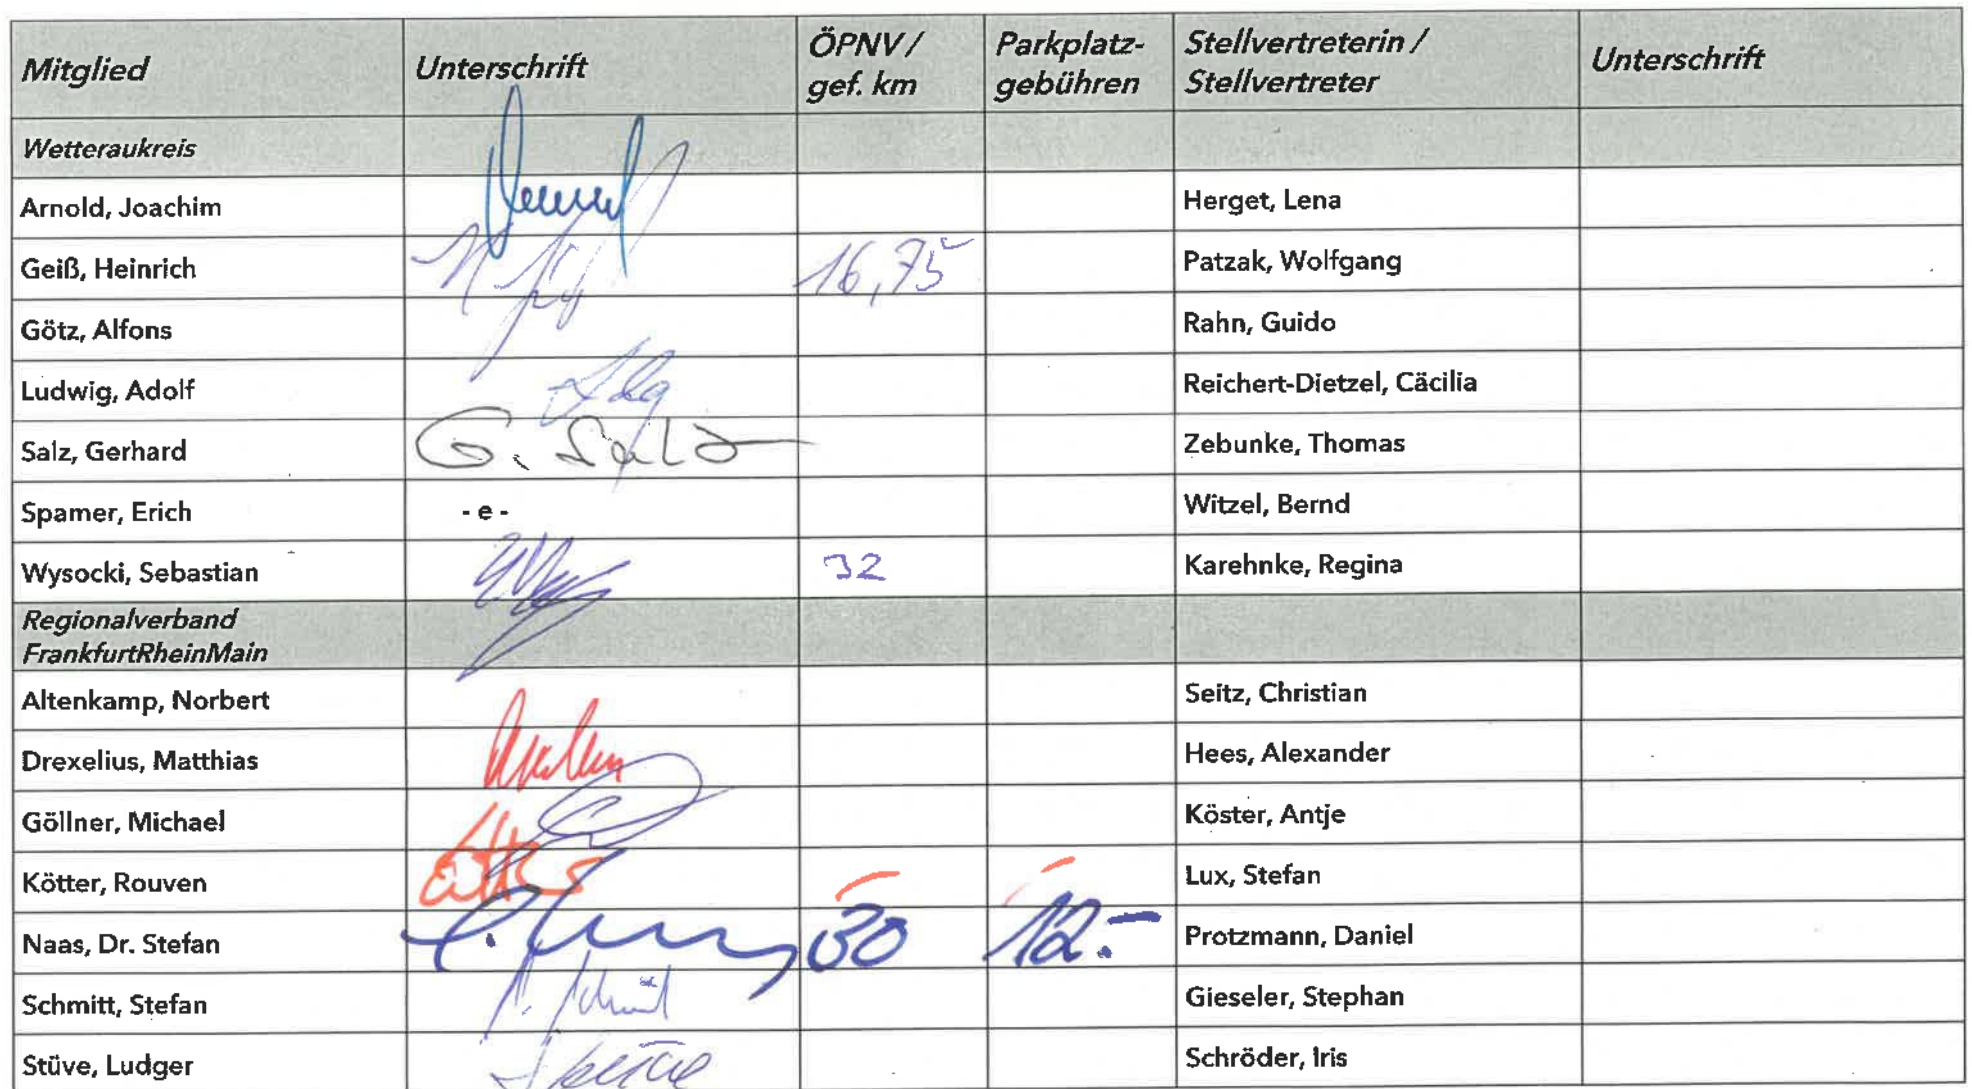 Mitglied Unterschrift ÖPNV / gef. km Parkplatz-gebühren Stellvertreterin / Stellvertreter Unterschrift
Wetteraukreis
Arnold, Joachim Herget, Lena
Geiß, Heinrich 16,75 Patzak, Wolfgang
Götz, Alfons Rahn, Guido
Ludwig, Adolf Reichert-Dietzel, Cäcilia
Salz, Gerhard G. Salz Zebunke, Thomas
Spamer, Erich - e - Witzel, Bernd
Wysocki, Sebastian 32 Karehnke, Regina
Regionalverband
FrankfurtRheinMain
Altenkamp, Norbert Seitz, Christian
Drexelius, Matthias Hees, Alexander
Göllner, Michael Köster, Antje
Kötter, Rouven Lux, Stefan
Naas, Dr. Stefan 30 12.- Protzmann, Daniel
Schmitt, Stefan Gieseler, Stephan
Stüve, Ludger Schröder, Iris